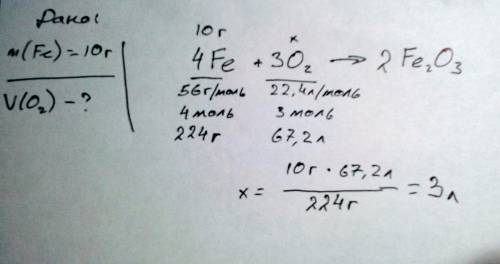 Дано:
m(Fe) = 10г
V(O₂) – ?
10г x
4Fe + 3O₂ → 2Fe₂O₃
56г/моль 22,4л/моль
4 моль 3 моль
224г 67,2л
x = 10г · 67,2л / 224г = 3л